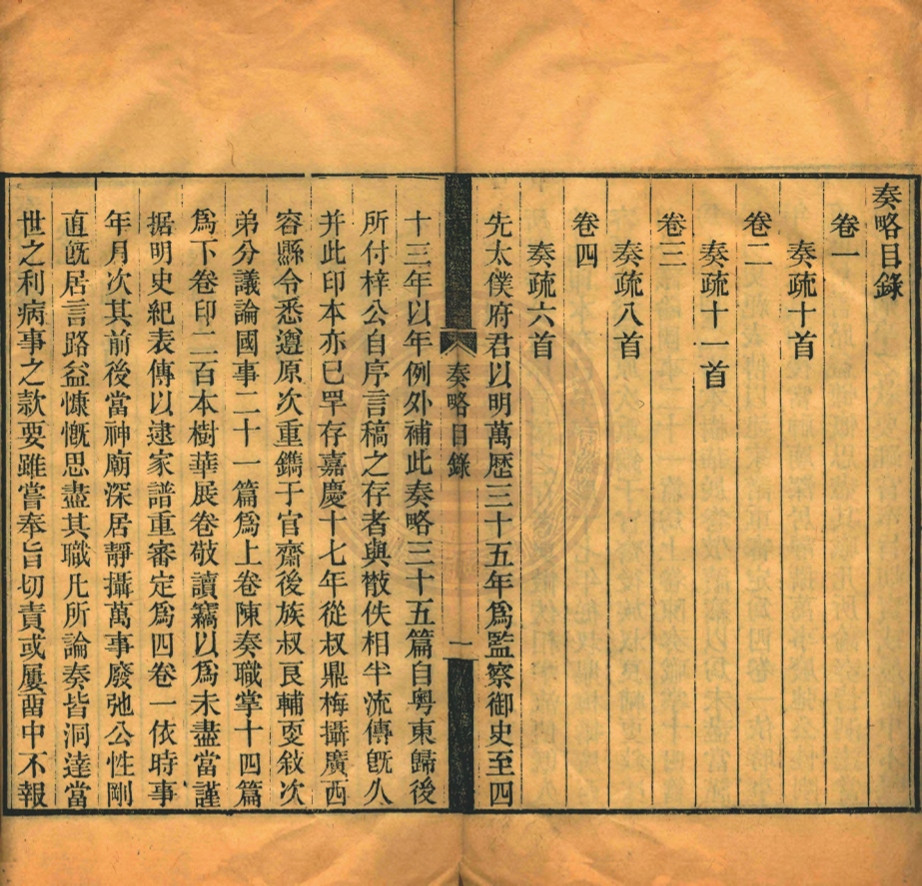 奏略目錄
卷一
奏疏十首
卷二
奏疏十一首
卷三
奏疏八首
卷四
奏疏六首
先太僕府君以明萬歷三十五年爲監察御史至四
奏略目錄
一
十三年以年例外補此奏略三十五篇自粤東歸後
所付梓公自序言稿之存者與散佚相半流傳旣久
并此印本亦已罕存嘉慶十七年從叔鼎梅攝廣西
容縣令悉遵原次重鐫于官齋後族叔良輔叓敍次
弟分議論國事二十一篇爲上卷陳奏職掌十四篇
爲下卷印二百本樹華展卷敬讀竊以爲未盡當謹
据明史紀表傳以逮家譜重審定爲四卷一依時事
年月次其前後當神廟深居靜攝萬事廢弛公性剛
直旣居言路益慷慨思盡其職凡所論奏皆洞達當
世之利病事之款要雖嘗奉旨切責或屢畱中不報